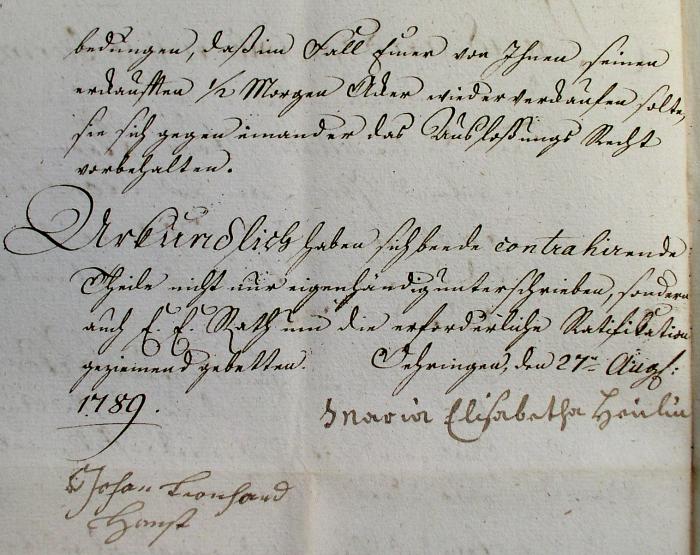 bedungen, daß im Fall Einer von Ihnen seinen
erkaufften 1/2 Morgen Aker wieder verkaufen solte,
sie sich gegen einander das Auslosungs Recht
vorbehalten.
Urkundlich haben sich beede contrahirende
Theile nicht nur eigenhändig unterschrieben, sondern
auch E. E. Rath um die erforderliche Ratifikation
geziemend gebetten. Oehringen, den 27ten Aug:
1789.
Maria Elisabetha
Johan Leonhard